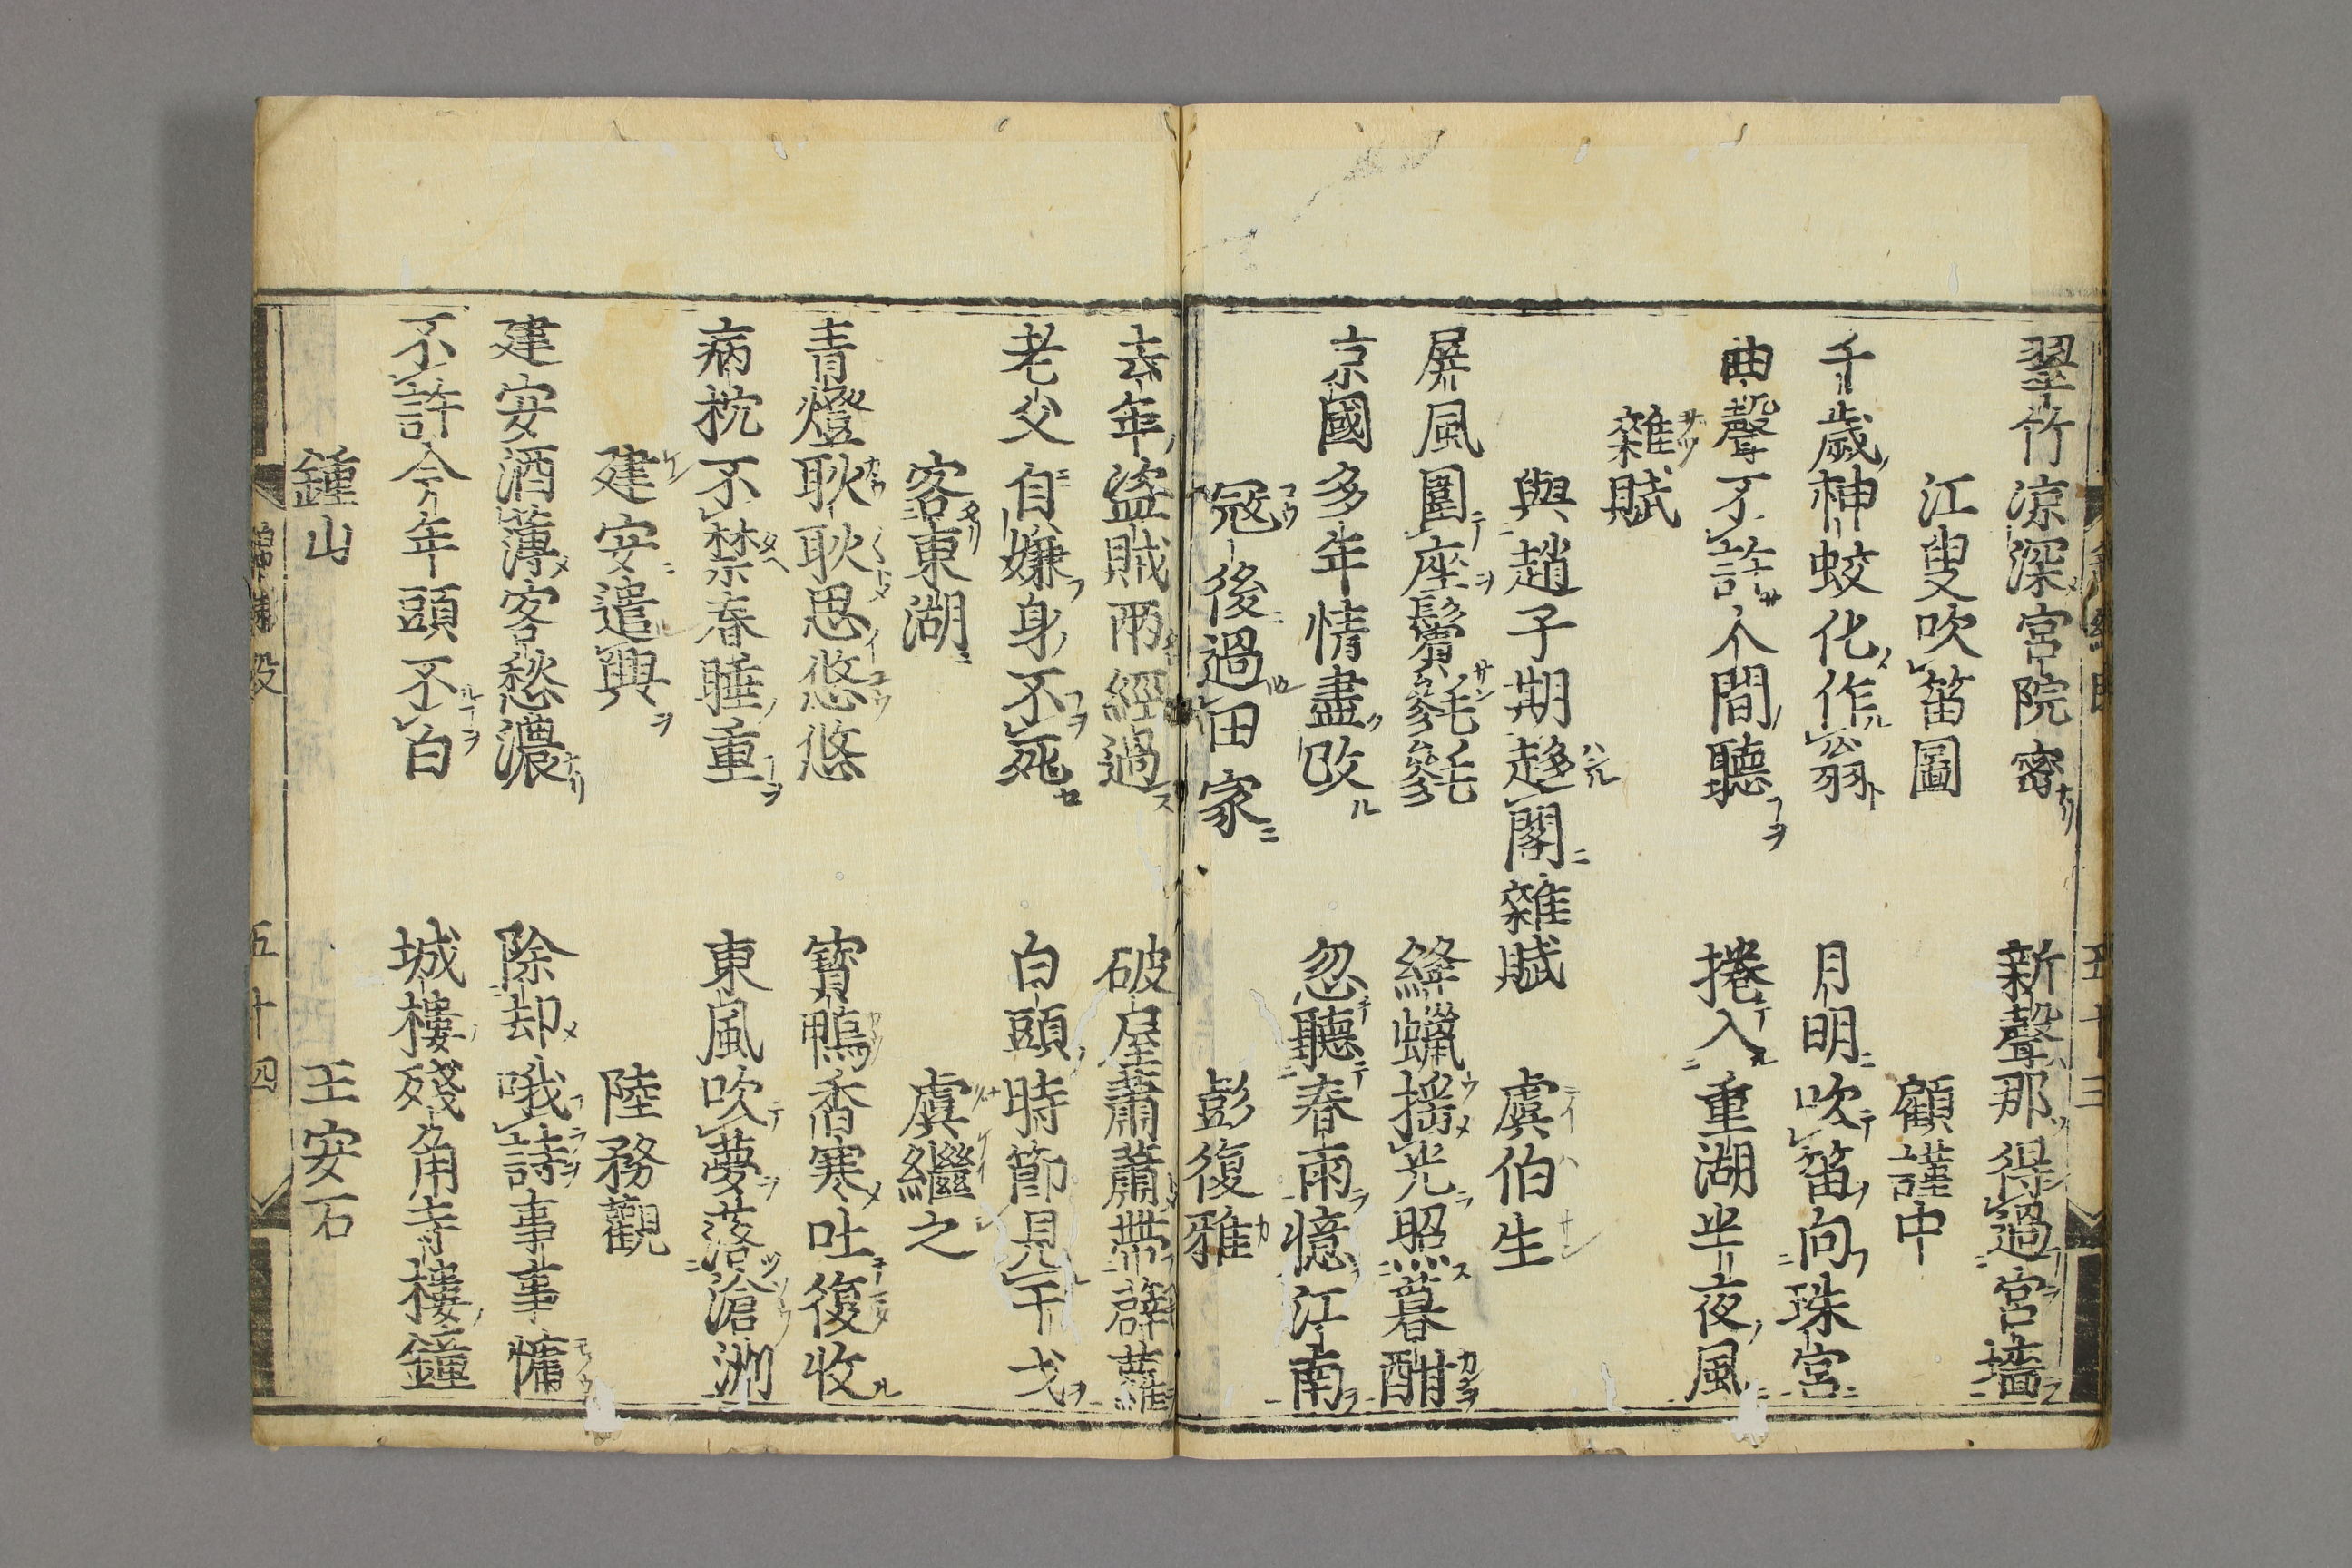 翠竹凉深宮院密　新聲那得過宮墻
江叟吹笛圖　顧謹中
千歲神蛟化作翁　月明吹笛向珠宮
曲聲不許人間聽　捲入重湖半夜風
雜賦
與趙子期趍閣雜賦　虞伯生
屏風圍座鬢毿毿　絳蠟搖光照暮酣
京國多年情盡改　忽聽春雨憶江南
冦後過田家　彭復雅
去年盜賊兩經過　破屋蕭蕭帶薜蘿
老父自嫌身不死　白頭時節見干戈
客東湖　虞繼之
青燈耿耿思悠悠　寶鴨香寒吐復收
病枕不禁春睡重　東風吹夢落滄洲
建安遣興　陸務觀
建安酒薄客愁濃　除却哦詩事事慵
不許今年頭不白　城樓殘角寺樓鐘
鍾山　王安石
五十三
五十四